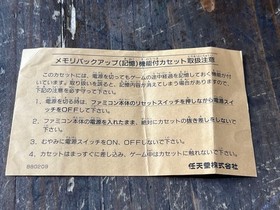 メモリバックアップ(記憶)機能付カセット取扱注意
このカセットには、電源を切ってもゲームの途中経過を記憶しておく機能が付
いています。取り扱いを誤ると、記憶内容が消えてしまう場合がありますので
下記の注意を必ず守って下さい。
1. 電源を切る時は、ファミコン本体のリセットスイッチを押しながら電源スイ
ッチをOFFして下さい。
2. ファミコン本体の電源を入れたまま、絶対にカセットの抜き差しをしない
で下さい。
3. むやみに電源スイッチをON、OFFしないで下さい。
4. カセットはまっすぐに差し込み、ゲーム中はカセットに触れないで下さい。
任天堂株式会社